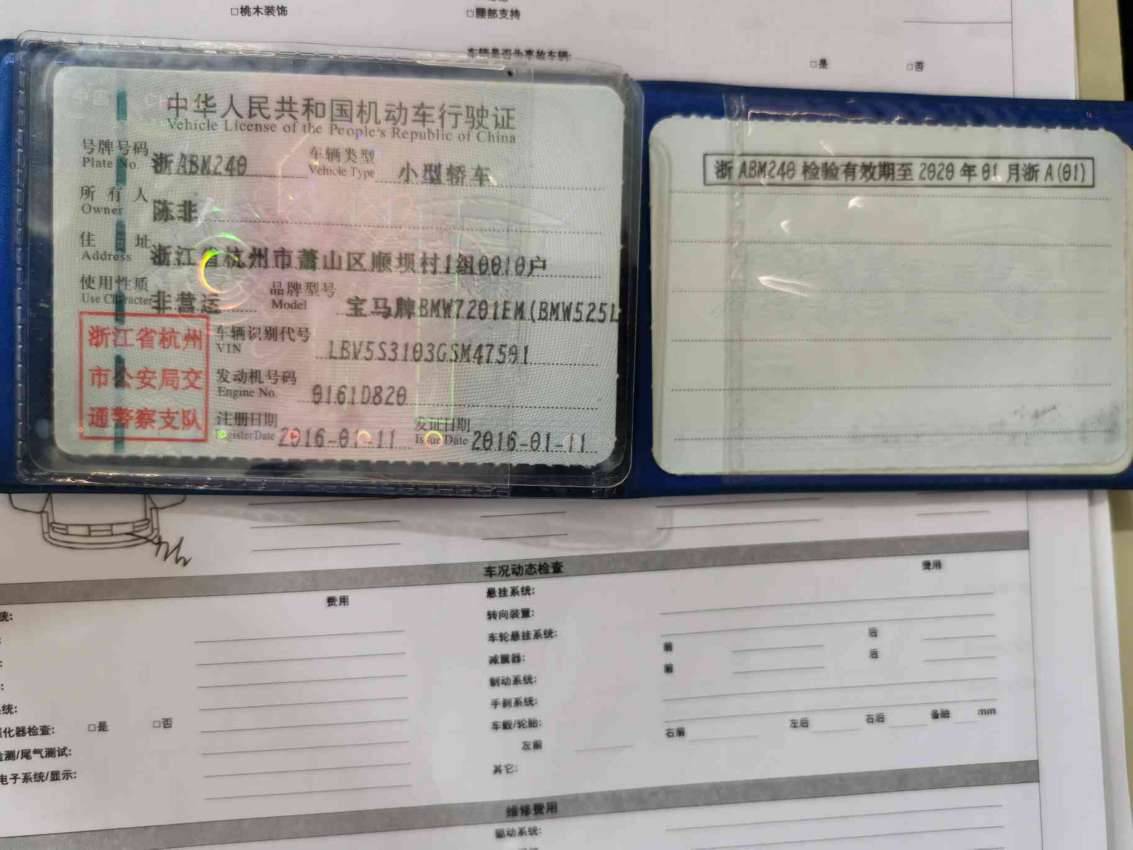 □桃木装饰
□腰部支持
车辆是否为事故车辆:
□是 □否
中华人民共和国机动车行驶证
Vehicle License of the People's Republic of China
号牌号码 浙ABM240 车辆类型 小型轿车
Plate No. Vehicle Type
所有人 陈非
Owner
住址 浙江省杭州市萧山区顺坝村1组0010户
Address
使用性质 非营运 品牌型号 宝马牌BMW7201EM(BMW525L
Use Character Model
浙江省杭州
市公安局交
通警察支队
车辆识别代号 LBV5S3103GSM47591
VIN
发动机号码 0161D820
Engine No.
注册日期 2016-01-11 发证日期 2016-01-11
Register Date Issue Date
浙ABM240 检验有效期至 2020 年 01 月浙 A(01)
车况动态检查
费用 费用
统:
悬挂系统:
转向装置:
车轮悬挂系统: 前 后
减震器: 前 后
制动系统:
手刹系统:
车毂/轮胎:
左前 右前 左后 右后 备胎 mm
其它:
统:
化器检查: □是 □否
检测/尾气测试:
电子系统/显示:
维修费用
驱动系统: